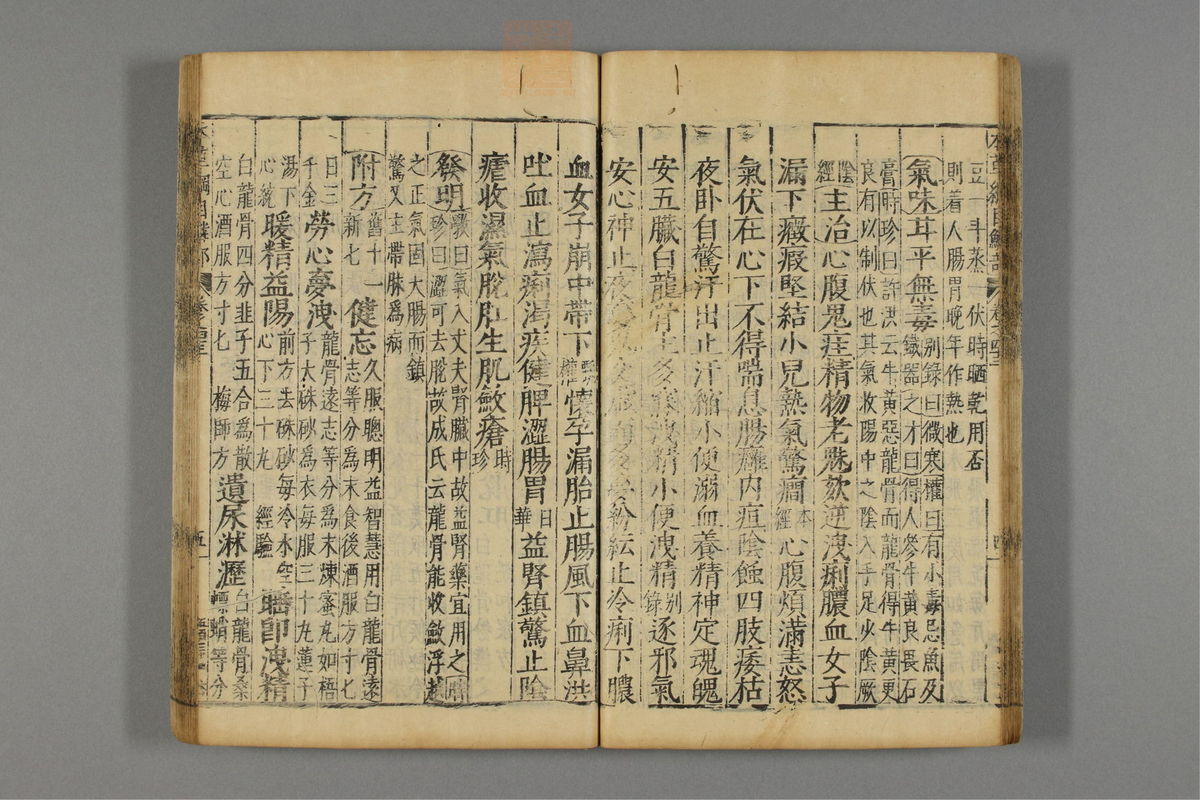 豆一斗蒸一伏時晒乾用否
則着人腸胃晚年作熱也
氣味甘平無毒別錄曰微寒權曰有小毒忌魚及
鐵器之才曰得人參牛黃良畏石
膏時珍曰許洪云牛黃惡龍骨而龍骨得牛黃更
良有以制伏也其氣收陽中之陰入手足少陰厥
陰經主治心腹鬼疰精物老魅欬逆洩痢膿血女子
漏下癥瘕堅結小兒熱氣驚癇本經心腹煩滿恚怒
氣伏在心下不得喘息腸癰内疽陰蝕四肢痿枯
夜卧自驚汗出止汗縮小便溺血養精神定魂魄
安五臟白龍骨主多寐洩精小便洩精別錄逐邪氣
安心神止夜紛紜止冷痢下膿
血女子崩中帶下甄權懷孕漏胎止腸風下血鼻洪
吐血止瀉痢渴疾健脾澀腸胃日華益腎鎮驚止陰
瘧收濕氣脫肛生肌斂瘡時珍
發明斅曰氣入丈夫腎臟中故益腎藥宜用之時
珍曰澀可去脫故成氏云龍骨能收斂浮越
之正氣固大腸而鎮
驚又主帶脉爲病
附方舊十一新七 健忘久服聰明益智慧用白龍骨遠
志等分爲末食後酒服方寸匕
日三千金 勞心夢洩龍骨遠志等分爲末煉蜜丸如梧
子大硃砂爲衣每服三十丸蓮子
湯下心統 暖精益陽前方去硃砂每冷水空
心下三十丸經驗 睡卽洩精
白龍骨四分韭子五合爲散
空心酒服方寸匕梅師方 遺尿淋瀝白龍骨桑
螵蛸等分